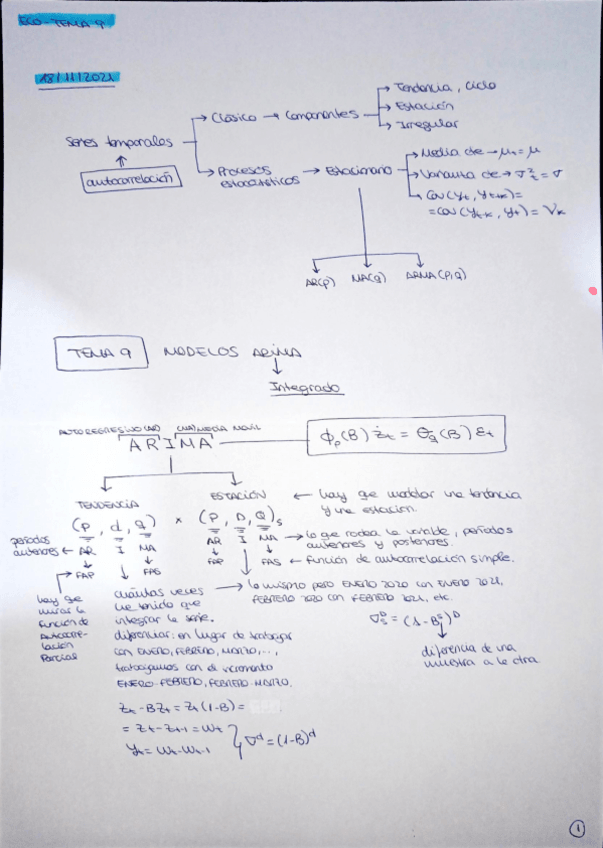 ECO - TEMA 9
18/11/2021
Tendencia, ciclo
Clásico → Componentes → Estación
Irregular
Series temporales
autocorrelación
Procesos estocásticos → Estacionario
Media cte → μt = μ
Varianza cte →
Cov(yt, yt+k) =
= Cov(yt-k, yt) = γk
AR(p) MA(q) ARMA(p,q)
TEMA 9 MODELOS ARIMA
Integrado
AUTOREGRESIVO (AR) (MA) MEDIA MOVIL
ARIMA
ϕp(B) żt = θq(B) εt
TENDENCIA
ESTACIÓN ← hay que modelar una tendencia
y una estación.
(p, d, q) × (P, D, Q)s
períodos anteriores ← AR I MA
AR I MA → lo que rodea la variable, períodos
anteriores y posteriores.
FAP FAS
FAP FAS ← función de autocorrelación simple.
hay que
mirar la
función de
Autocorre-
lación
Parcial
cuántas veces
he tenido que
integrar la serie.
diferenciar: en lugar de trabajar
con ENERO, FEBRERO, MARZO, ...,
trabajamos con el incremento
ENERO-FEBRERO, FEBRERO-MARZO.
→ lo mismo pero ENERO 2020 con ENERO 2021,
FEBRERO 2020 con FEBRERO 2021, etc.
∇sD = (1-Bs)D
diferencia de una
muestra a la otra
zt - Bzt = zt(1-B) =
= zt - zt-1 = wt
yt = wt - wt-1
∇d = (1-B)d
1